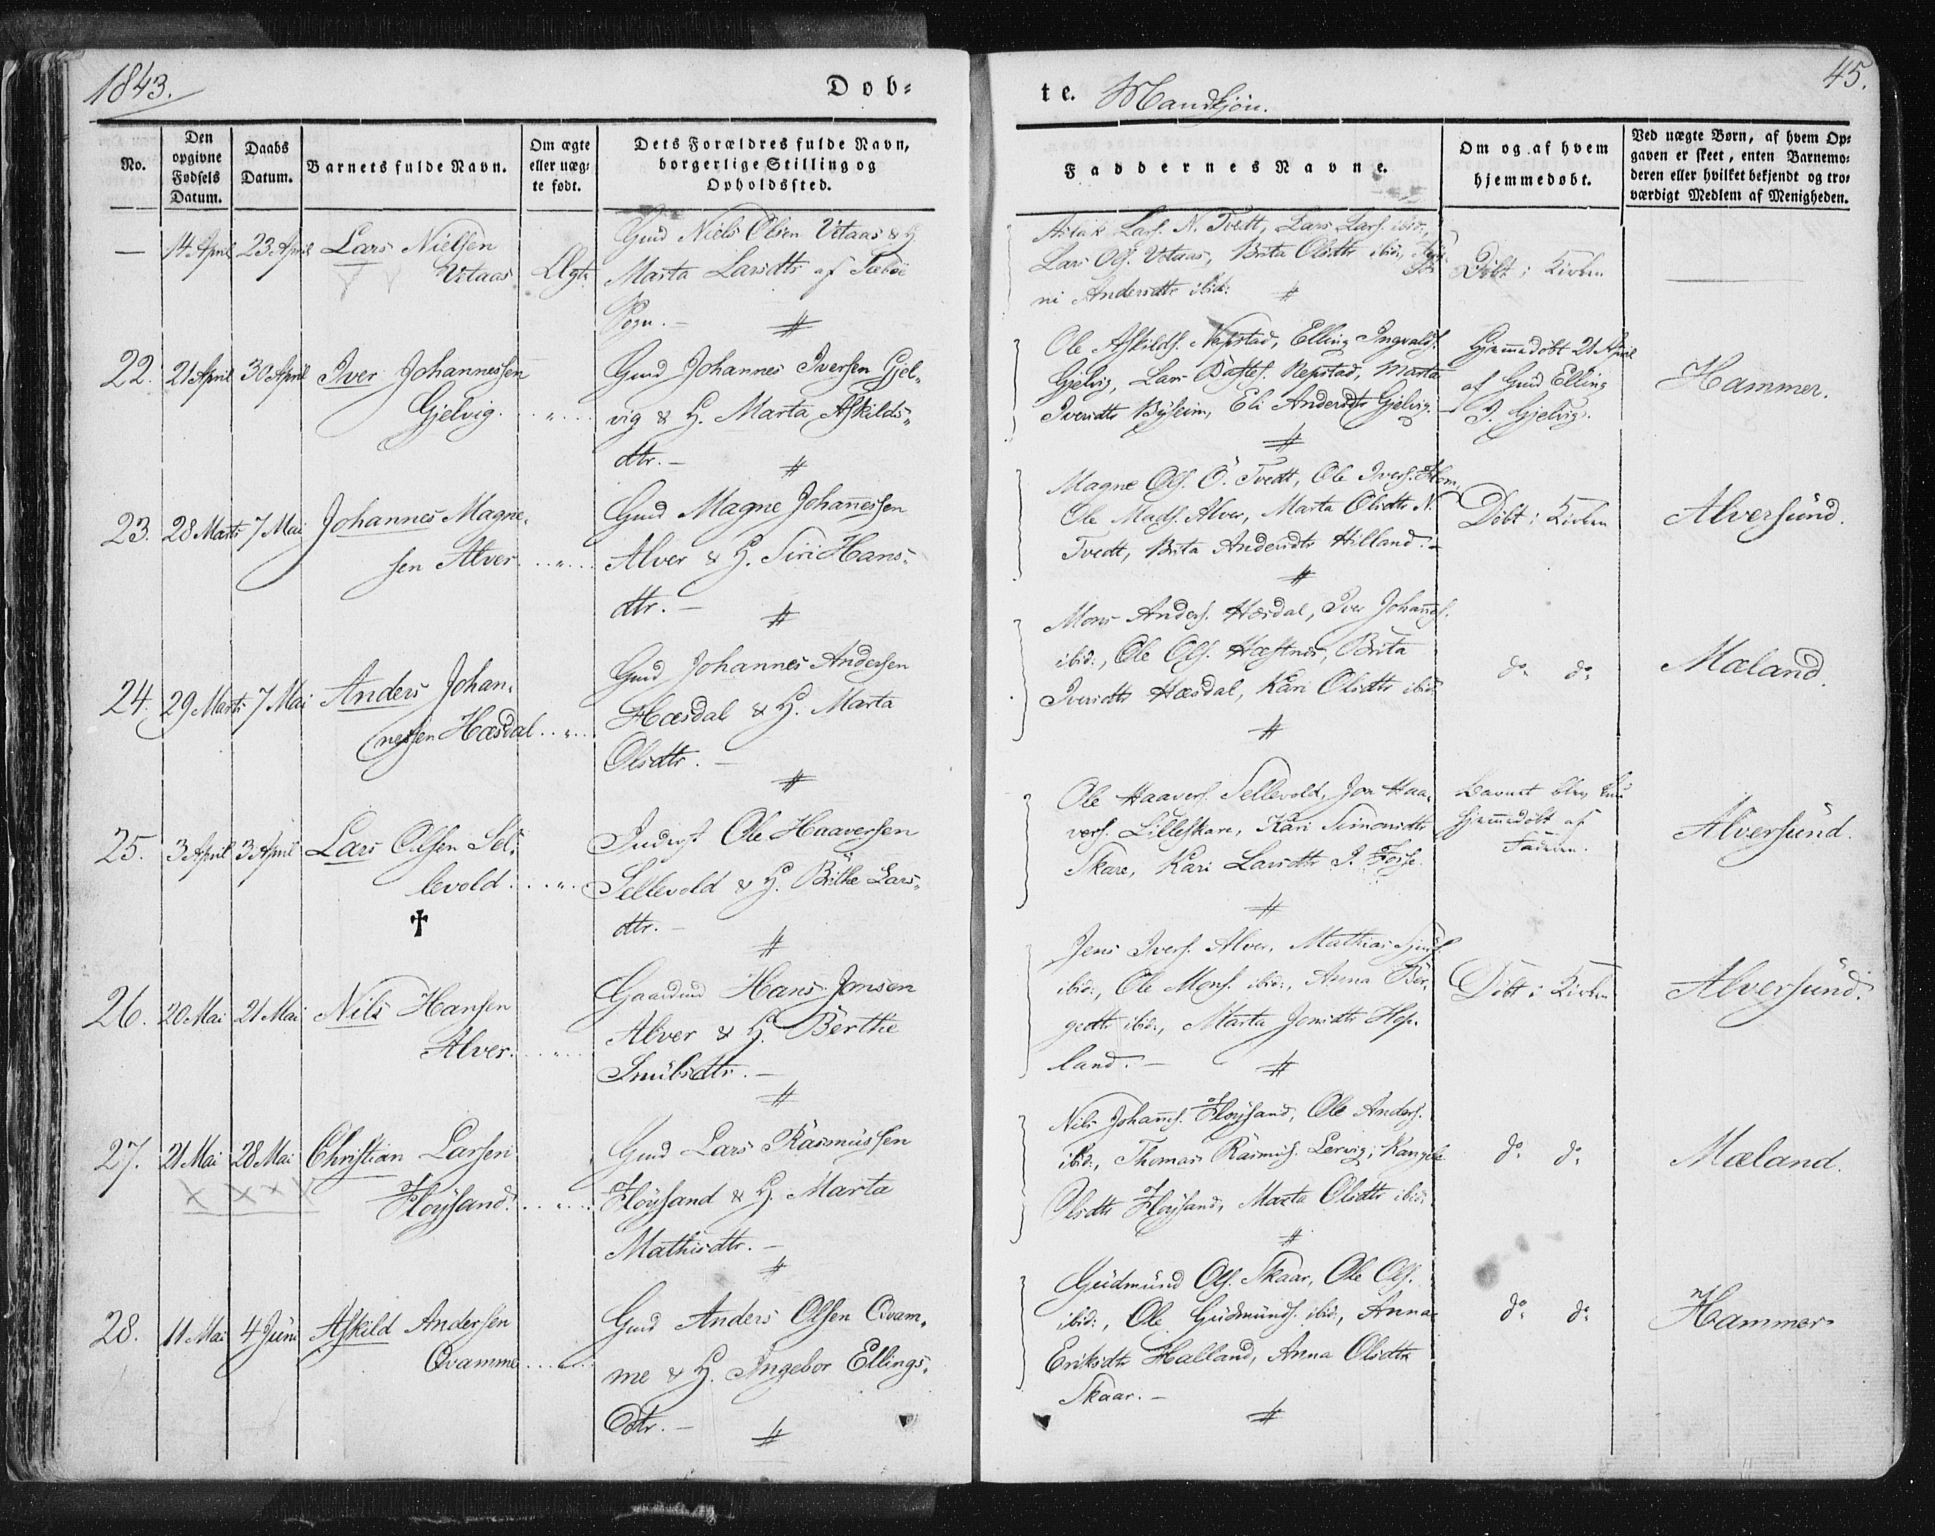 1843.
Dob=
te. Mandkjön.
45.
No.
Den opgivne Fødsels Datum.
Daabs Datum.
Barnets fulde Navn.
Om ægte eller uægte født.
Dets Forældres fulde Navn, borgerlige Stilling og Opholdssted.
Faddernes Navne.
Om og af hvem hjemmedøbt.
Ved uægte Børn, af hvem Opgaven er skeet, enten Barnemoderen eller hvilket bekjendt og troværdigt Medlem af Menigheden.
— 14 April 23 April Lars Nielsen
Vetaas
Gmd Niels Olsen Vetaas & H
Marta Larsdtr af
Sogn. —
Lars. N. Tvedt, Lars Lars. ibid.,
Lars Ols. Vetaas, Brita Olsdtr ibid,
Andersdtr ibid:
Döbt i Kirken
22. 21 April 30 April Iver Johannessen
Gjelvig.
Gmd Johannes Iversen Gjel=
vig & H. Marta Askilds=
dtr. —
Ole Askilds. Nepstad, Elling Ingvalds.
Gjelvig, Lars Nepstad, Marta
Iversdtr Byheim, Eli Andersdtr Gjelvig.
Hjemmedöbt 21 April
af Gmd Elling
I. Gjelvig.
Hammer.
23. 28 Marts 7 Mai Johannes Magne=
sen Alver
Gmd Magne Johanessen
Alver & H. Siri Hans=
dtr. —
Magne Ols. Ö. Tvedt, Ole Ivers.
Ole Mads. Alver, Marta Olsdtr N.
Tvedt, Brita Andersdtr Hilland. —
Döbt i Kirken
Alversund.
24. 29 Marts 7 Mai Anders Johan=
nessen Hæsdal
Gmd Johannes Andersen
Hæsdal & H. Marta
Olsdtr. —
Mons Anders. Hæsdal, Iver Johan̄s.
ibid:, Ole Ols. Hæstnes, Brita
Iversdtr Hæsdal, Kari Olsdtr ibid
do do
Mæland.
25. 3 April 3 April Lars Olsen Sel=
levold
†
Inderst Ole Haaversen
Sellevold & H. Brithe Lars=
dtr. —
Ole Haavers. Sellevold, Jon Haa=
vers. Lilleskare, Kari Simonsdtr
Skare, Kari Larsdtr I. Fosse.
Barnet blev kun
hjemmedöbt af
Faderen.
Alversund.
26. 20 Mai 21 Mai Nils Hansen
Alver.
Gaardmd Hans Jonsen
Alver & H. Berthe
—
Jens Ivers. Alver, Mathias
ibid:, Ole Mons. ibid:, Anna Bör=
gedtr ibid:, Marta Jonsdtr Hop=
land. —
Döbt i Kirken
Alversund.
27. 21 Mai 28 Mai Christian Larsen
Flöysand.
Gmd Lars Rasmussen
Flöysand & H. Marta
Mathisdtr. —
Nils Johan̄s. Flöysand, Ole Anders.
ibid:, Thomas Rasmus. Lervig,
Olsdtr Flöysand, Marta Olsdtr ibid.
do do
Mæland.
28. 11 Mai 4 Juni Askild Andersen
Qvamme
Gmd Anders Olsen Qvam=
me & H. Ingebor Ellings=
Dtr. —
Gudmund Ols. Skaar, Ole Ols.
ibid:, Ole Gudmunds. ibid:, Anna
Eriksdtr Halland, Anna Olsdtr
Skaar. —
do do
Hammer